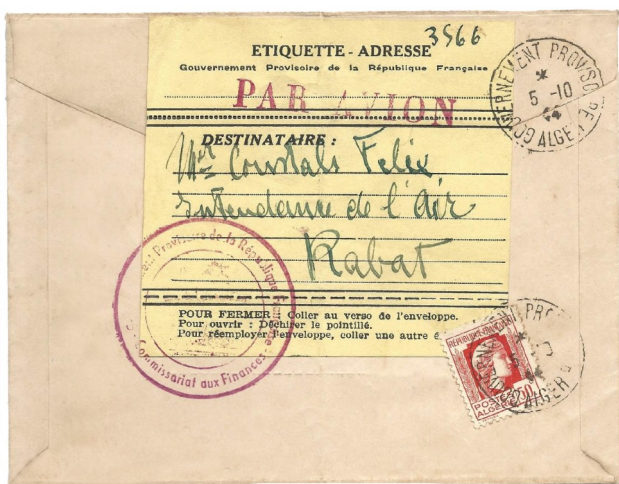 3566
ETIQUETTE - ADRESSE
Gouvernement Provisoire de la République Française
PAR AVION
DESTINATAIRE :
Mr Coustals Felix
Intendance de l'Air
Rabat
POUR FERMER : Coller au verso de l'enveloppe.
Pour ouvrir : Déchirer le pointillé.
Pour réemployer l'enveloppe, coller une autre é
GOUVERNEMENT PROVISOIRE
5 -10
44
ALGER
Provisoire de la République Française
Commissariat aux Finances
REPUBLIQUE FRANÇAISE
POSTES
ALGERIE
50
ALGER